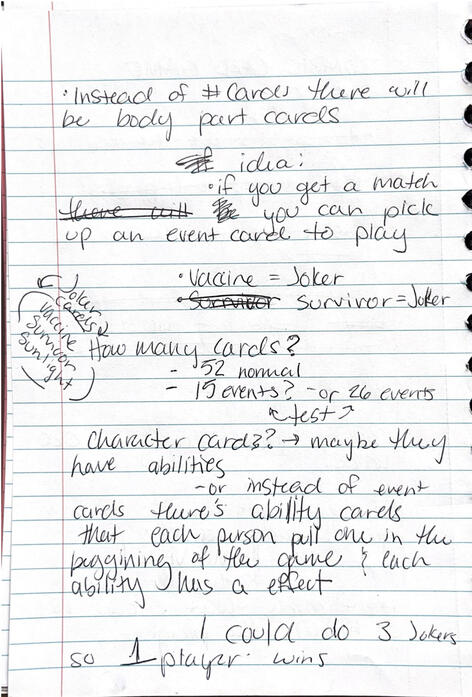 · Instead of # Cards there will
be body part cards
# idea:
· if you get a match
there will you can pick
up an event card to play
· Vaccine = Joker
· Survivor Survivor = Joker
Joker
cards
vaccine
Survivor
Sunlight
How many cards?
- 52 normal
- 15 events? - or 26 events
test
Character cards? → maybe they
have abilities
- or instead of event
cards there's ability cards
that each person pull one in the
beggining of the game & each
ability has a effect
I could do 3 Jokers
so 1 player wins